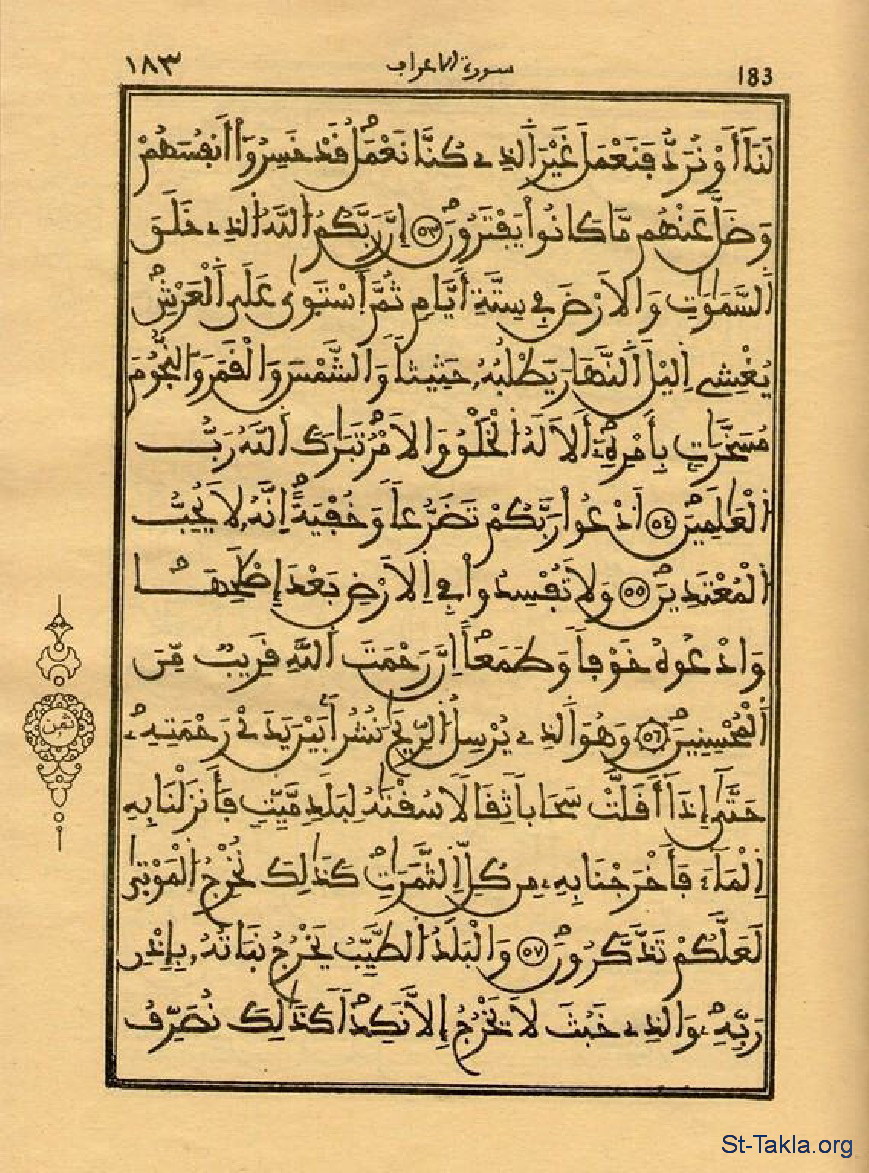 ١٨٣ سورة الاعراف 183
لَنَا أَوْ نُرَدُّ فَنَعْمَلَ غَيْرَ الذِے كُنَّا نَعْمَلُ قَدْ خَسِرُوا أَنفُسَهُمْ
وَضَلَّ عَنْهُم مَّا كَانُوا يَفْتَرُونَ ٥٣ إِنَّ رَبَّكُمُ اللَّهُ الذِے خَلَقَ
السَّمَٰوَٰتِ وَالَارْضَ فِے سِتَّةِ أَيَّامٍ ثُمَّ اسْتَوَىٰ عَلَى الْعَرْشِ
يُغْشِے اِليْلَ النَّهَارَ يَطْلُبُهُ حَثِيثاً وَالشَّمْسَ وَالْقَمَرَ وَالنُّجُومَ
مُسَخَّرَٰتٍ بِأَمْرِهِ أَلَا لَهُ الْخَلْقُ وَالَامْرُ تَبَٰرَكَ اللَّهُ رَبُّ
الْعَٰلَمِينَ ٥٤ اَدْعُوا رَبَّكُمْ تَضَرُّعاً وَخُفْيَةً اِنَّهُ لَا يُحِبُّ
الْمُعْتَدِينَ ٥٥ وَلَا تُفْسِدُوا فِے اِلَارْضِ بَعْدَ إِصْلَٰحِهَا
وَادْعُوهُ خَوْفاً وَطَمَعاً اِنَّ رَحْمَتَ اللَّهِ قَرِيبٌ مِّنَ
الْمُحْسِنِينَ ٥٦ وَهُوَ الذِے يُرْسِلُ الرِّيَٰحَ نُشُراً بَيْنَ يَدَےْ رَحْمَتِهِ
حَتَّىٰ إِذَا أَقَلَّتْ سَحَاباً ثِقَالاً سُقْنَٰهُ لِبَلَدٍ مَّيِّتٍ فَأَنزَلْنَا بِهِ
اِلْمَاءَ فَأَخْرَجْنَا بِهِ مِن كُلِّ الثَّمَرَٰتِ كَذَٰلِكَ نُخْرِجُ الْمَوْتَىٰ
لَعَلَّكُمْ تَذَّكَّرُونَ ٥٧ وَالْبَلَدُ الطَّيِّبُ يَخْرُجُ نَبَاتُهُ بِإِذْنِ
رَبِّهِ وَالذِے خَبُثَ لَا يَخْرُجُ إِلَّا نَكِداً كَذَٰلِكَ نُصَرِّفُ
ثمن
St-Takla.org